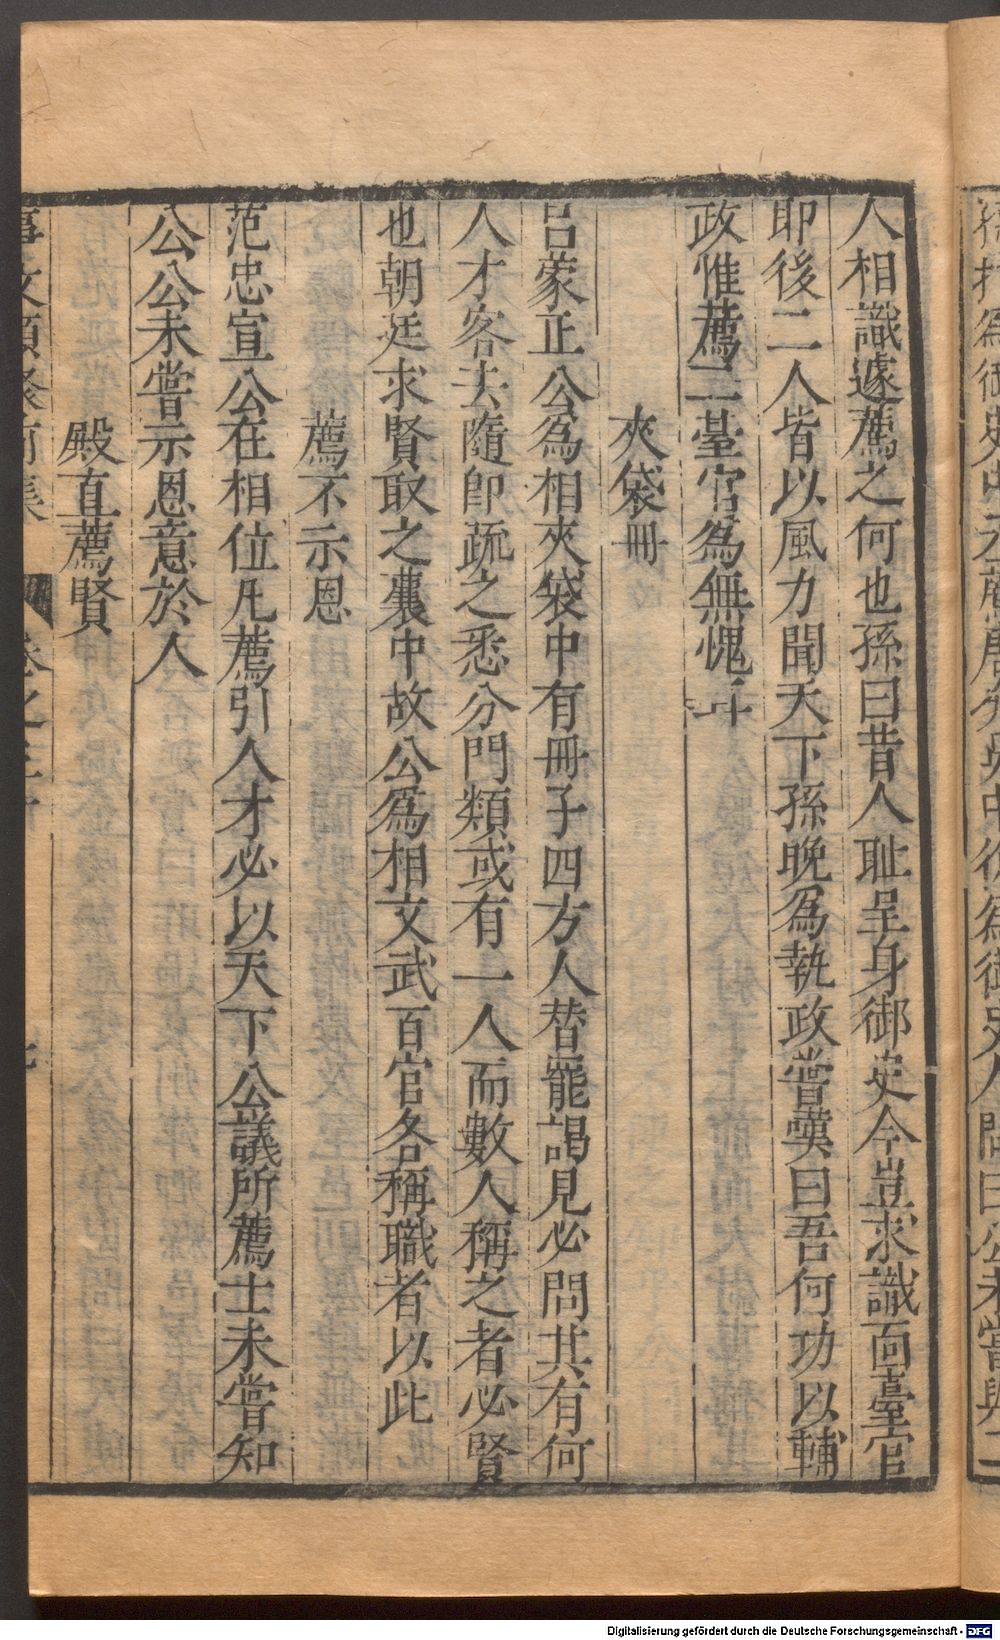 孫抃為御史中丞薦唐介吳中復為御史人問曰公未嘗與二
人相識遽薦之何也孫曰昔人耻呈身御史今豈求識面臺官
耶後二人皆以風力聞天下孫晚為執政嘗嘆曰吾何功以輔
政惟薦二臺官為無愧耳
夾袋冊
呂蒙正公為相夾袋中有冊子四方人替罷謁見必問其有何
人才客去隨即疏之悉分門類或有一人而數人稱之者必賢
也朝廷求賢取之囊中故公為相文武百官各稱職者以此
薦不示恩
范忠宣公在相位凡薦引人才必以天下公議所薦士未嘗知
公公未嘗示恩意於人
殿直薦賢
事文類聚前集 卷之三十 七
Digitalisierung gefördert durch die Deutsche Forschungsgemeinschaft - DFG